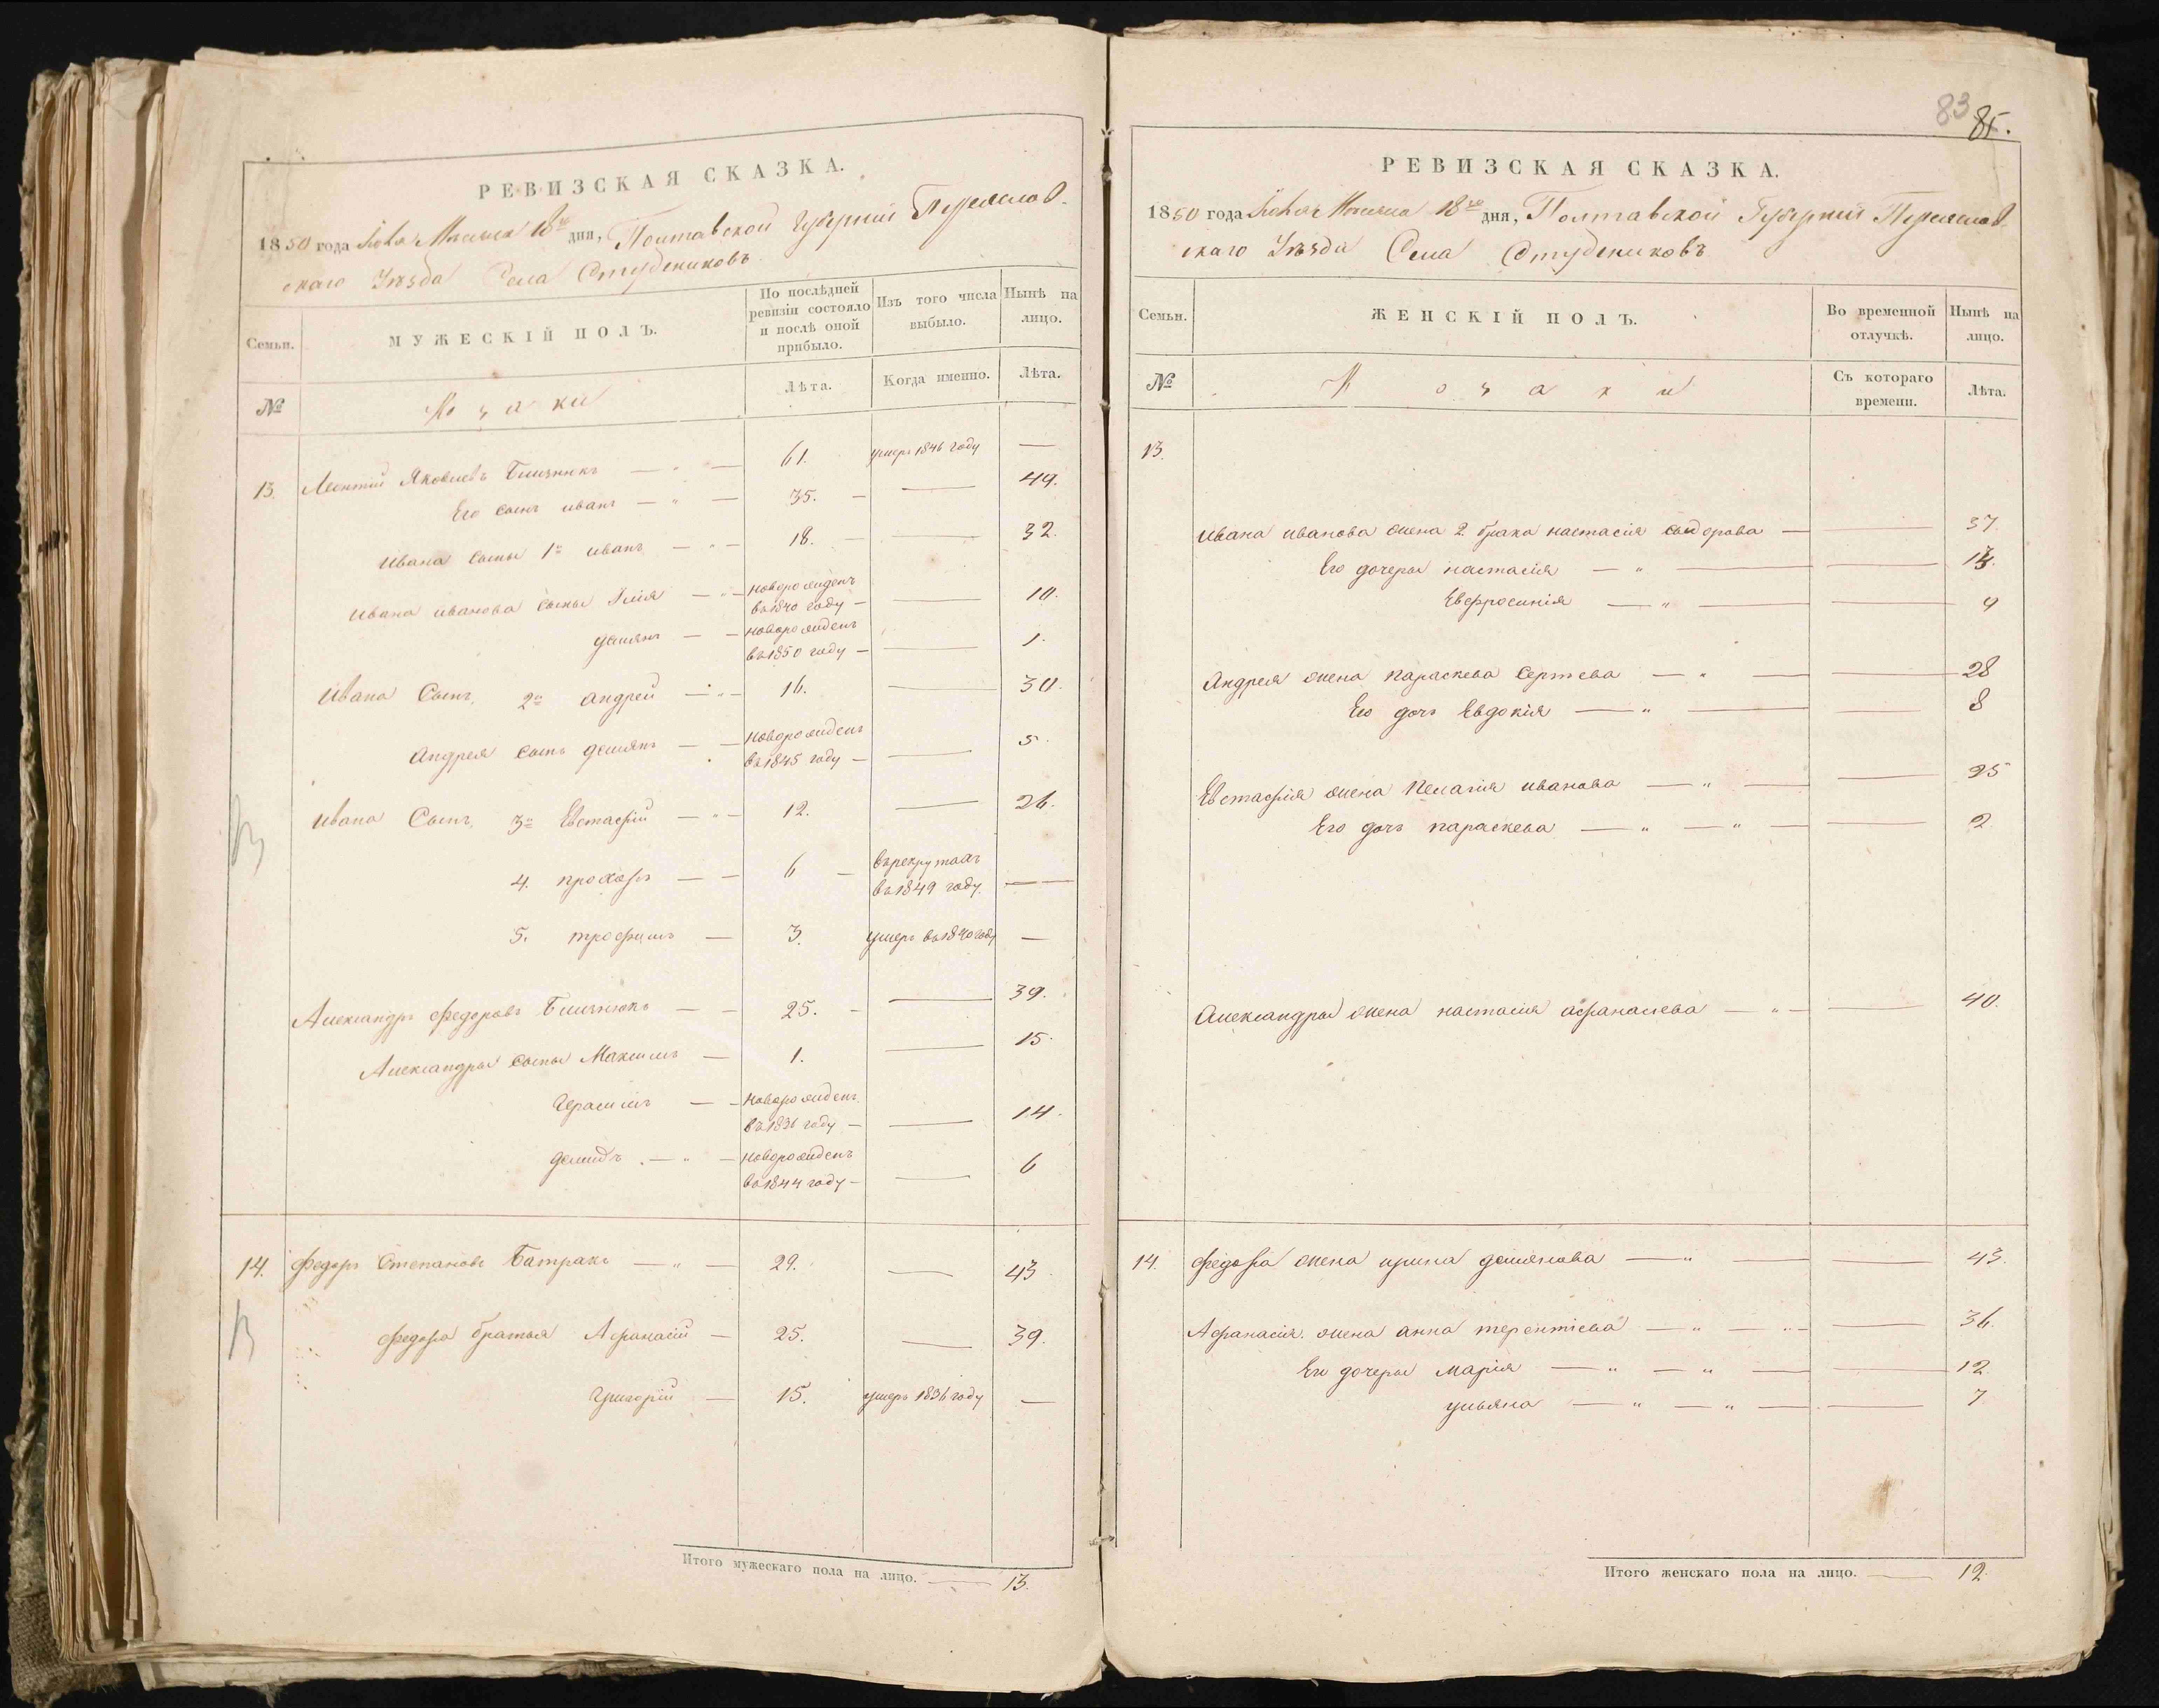 РЕВИЗСКАЯ СКАЗКА.
1850 года Июня Месяца 18го дня, Полтавской Губерніи Переяслав-
скаго Уѣзда Села Студениковъ
Семьи.
МУЖЕСКІЙ ПОЛЪ.
По послѣдней ревизіи состояло и послѣ оной прибыло.
Изъ того числа выбыло.
Нынѣ на лицо.
№
Козаки
Лѣта.
Когда именно.
Лѣта.
13. Леонтій Яковлевъ Близнюкъ — " — 61. умеръ 1846 году —
Его сынъ иванъ — " — 35. — — 49.
ивана сыны 1й иванъ — " — 18. — — 32.
ивана иванова сыны Илія — " — новорожденъ въ 1840 году — — 10.
демянъ — — новорожденъ въ 1850 году — — 1.
ивана Сынъ, 2й андрей — " — 16. — 30.
андрея сынъ демянъ — — новорожденъ въ 1845 году — — 5.
ивана Сынъ, 3й Евстафій — " — 12. — 26.
4. прохоръ — — 6 — въ рекрутахъ въ 1849 году. —
5. трофимъ — 3. умеръ въ 1840 году —
Александръ федоровъ Близнюкъ — — 25. — — 39.
Александры сыны Максимъ — 1. — 15.
Герасимъ — — новорожденъ въ 1836 году — — 14.
демидъ — " — новорожденъ въ 1844 году — — 6
14. федоръ Степановъ Батракъ — " — 29. — 43.
федора братья Афанасій — 25. — 39.
григорій — 15. умеръ 1836 году —
Итого мужескаго пола на лицо. — 13.
83 85.
РЕВИЗСКАЯ СКАЗКА.
1850 года Июня Месяца 18го дня, Полтавской Губерніи Переяслав-
скаго Уѣзда Села Студениковъ
Семьи.
ЖЕНСКІЙ ПОЛЪ.
Во временной отлучкѣ.
Нынѣ на лицо.
№
Козачки
Съ котораго времени.
Лѣта.
13.
ивана иванова жена 2. брака настасія сидорова — — 37.
Его дочеры настасія — " — — 13.
Евфросинія — " — — 9
андрея жена параскева Сергіева — " — — 28
Его дочь Евдокія — " — — 8
Евстафія жена пелагія иванова — " — — 25
Его дочь параскева — " — " — — 2
Александры жена настасія афанасіева — " — — 40.
14. федора жена ирина демянова — " — — 43.
Афанасія жена анна терентіева — " — " — — 36.
Его дочеры марія — " — " — — 12
ульяна — " — " — — 7
Итого женскаго пола на лицо. — 12.